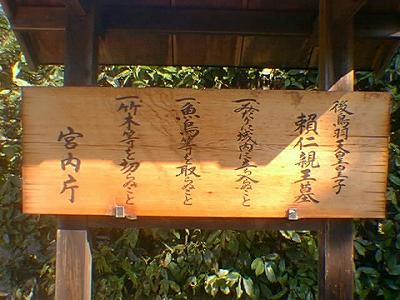 後鳥羽天皇皇子
頼仁親王墓
一みだりに域内に立ち入らぬこと
一魚鳥等を取らぬこと
一竹木等を切らぬこと
宮内庁